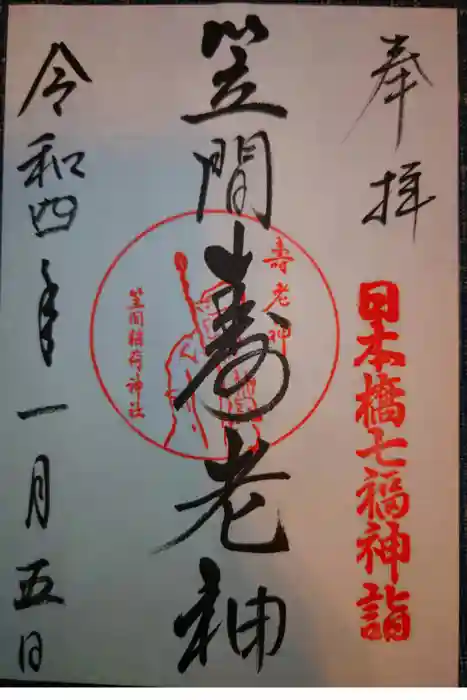 奉拝
日本橋七福神詣
笠間寿老神
寿老神
笠间稲荷神社
令和四年一月五日